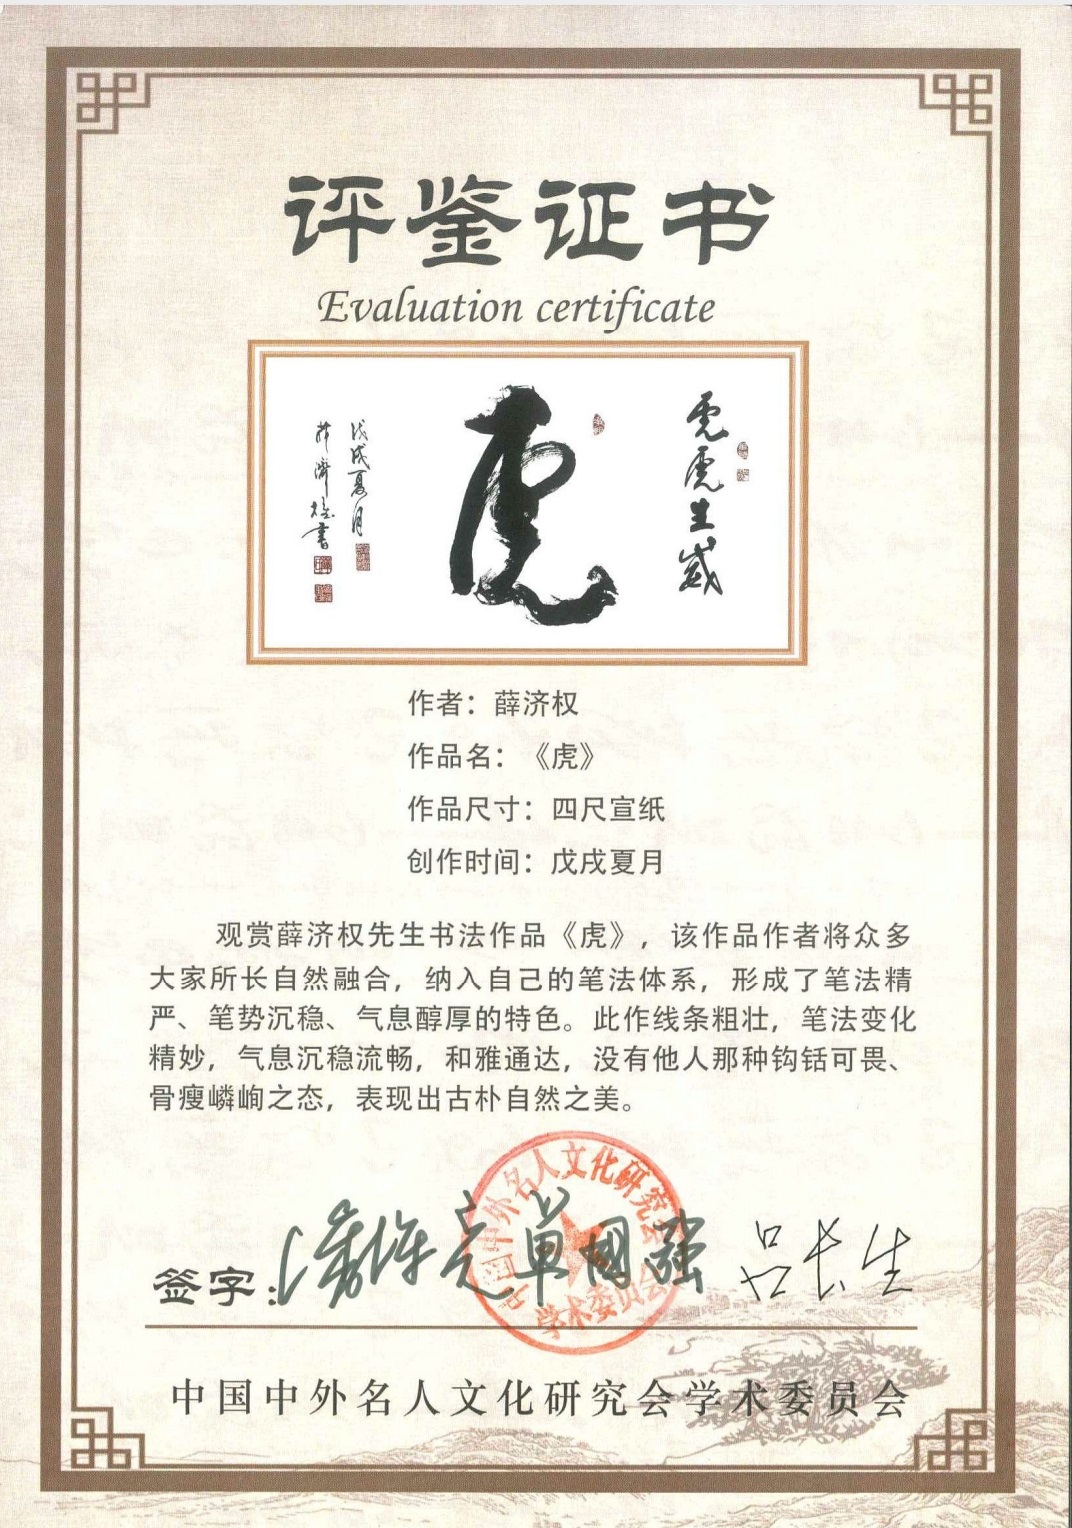 评鉴证书
Evaluation certificate
虎虎生威
虎
戊戌夏月
薛济权书
作者：薛济权
作品名：《虎》
作品尺寸：四尺宣纸
创作时间：戊戌夏月
观赏薛济权先生书法作品《虎》，该作品作者将众多
大家所长自然融合，纳入自己的笔法体系，形成了笔法精
严、笔势沉稳、气息醇厚的特色。此作线条粗壮，笔法变化
精妙，气息沉稳流畅，和雅通达，没有他人那种钩铦可畏、
骨瘦嶙峋之态，表现出古朴自然之美。
中国中外名人文化研究会
学术委员会
签字：
单国强 吕长生
中国中外名人文化研究会学术委员会